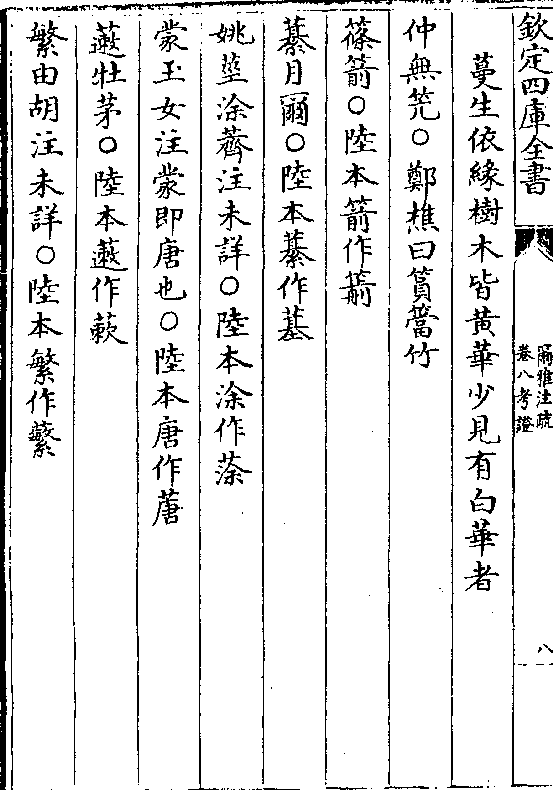 欽定四庫全書
爾雅注疏
卷八考證
八
蔓生依緣樹木皆黃華少見有白華者
仲無笐○鄭樵曰篔簹竹
篠箭○陸本箭作葥
藄月爾○陸本藄作萁
姚莖涂薺注未詳○陸本涂作蒤
蒙玉女注蒙即唐也○陸本唐作蓎
藗牡茅○陸本藗作蔌
繁由胡注未詳○陸本繁作蘩